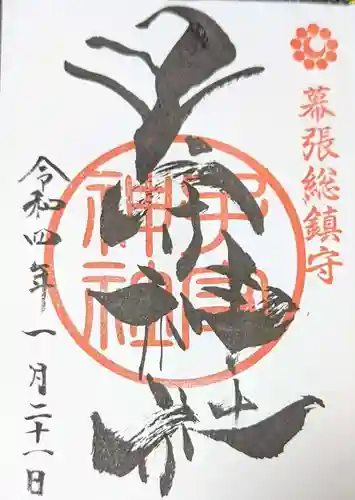 幕張総鎮守
子守神社
子守神社
令和四年一月二十一日